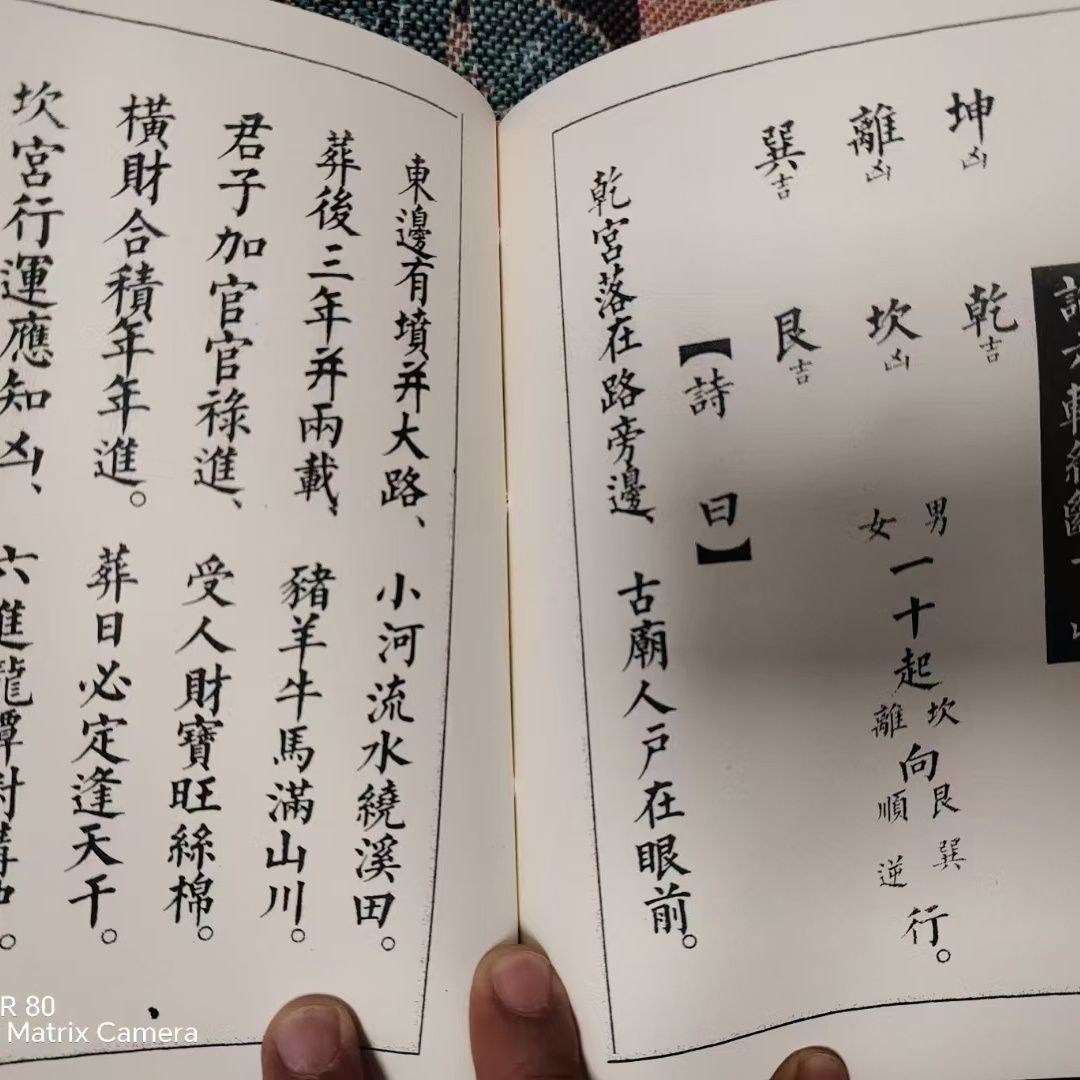 坤凶 乾吉
離凶 坎凶
巽吉 艮吉
男女一十起坎離向艮順巽逆行。
【詩曰】
乾宮落在路旁邊、古廟人戶在眼前。
東邊有墳并大路、小河流水繞溪田。
葬後三年并兩載、豬羊牛馬滿山川。
君子加官官祿進、受人財寶旺絲棉。
橫財合積年年進。葬日必定逢天干。
坎宮行運應知凶、六進龍潭
R 80
Matrix Camera